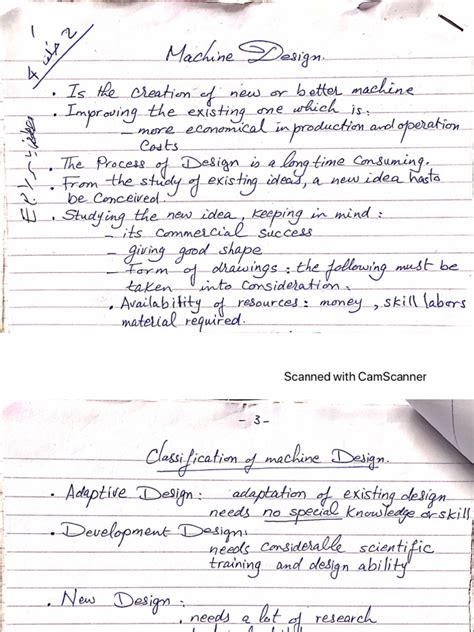 Machine Design.
. Is the creation of new or better machine
. Improving the existing one which is:
– more economical in production and operation
Costs
. The Process of Design is a long time consuming.
. From the study of existing ideas, a new idea hasto
be conceived.
. Studying the new idea, keeping in mind:
– its commercial success
– giving good shape
– Form of drawings: the following must be
taken into consideration.
. Availability of resources: money, skill labors
material required.
Scanned with CamScanner
- 3 -
Classification of machine Design.
. Adaptive Design: adaptation of existing design
needs no special knowledge or skill
. Development Design:
needs considerable scientific
training and design ability
. New Design:
. needs a lot of research